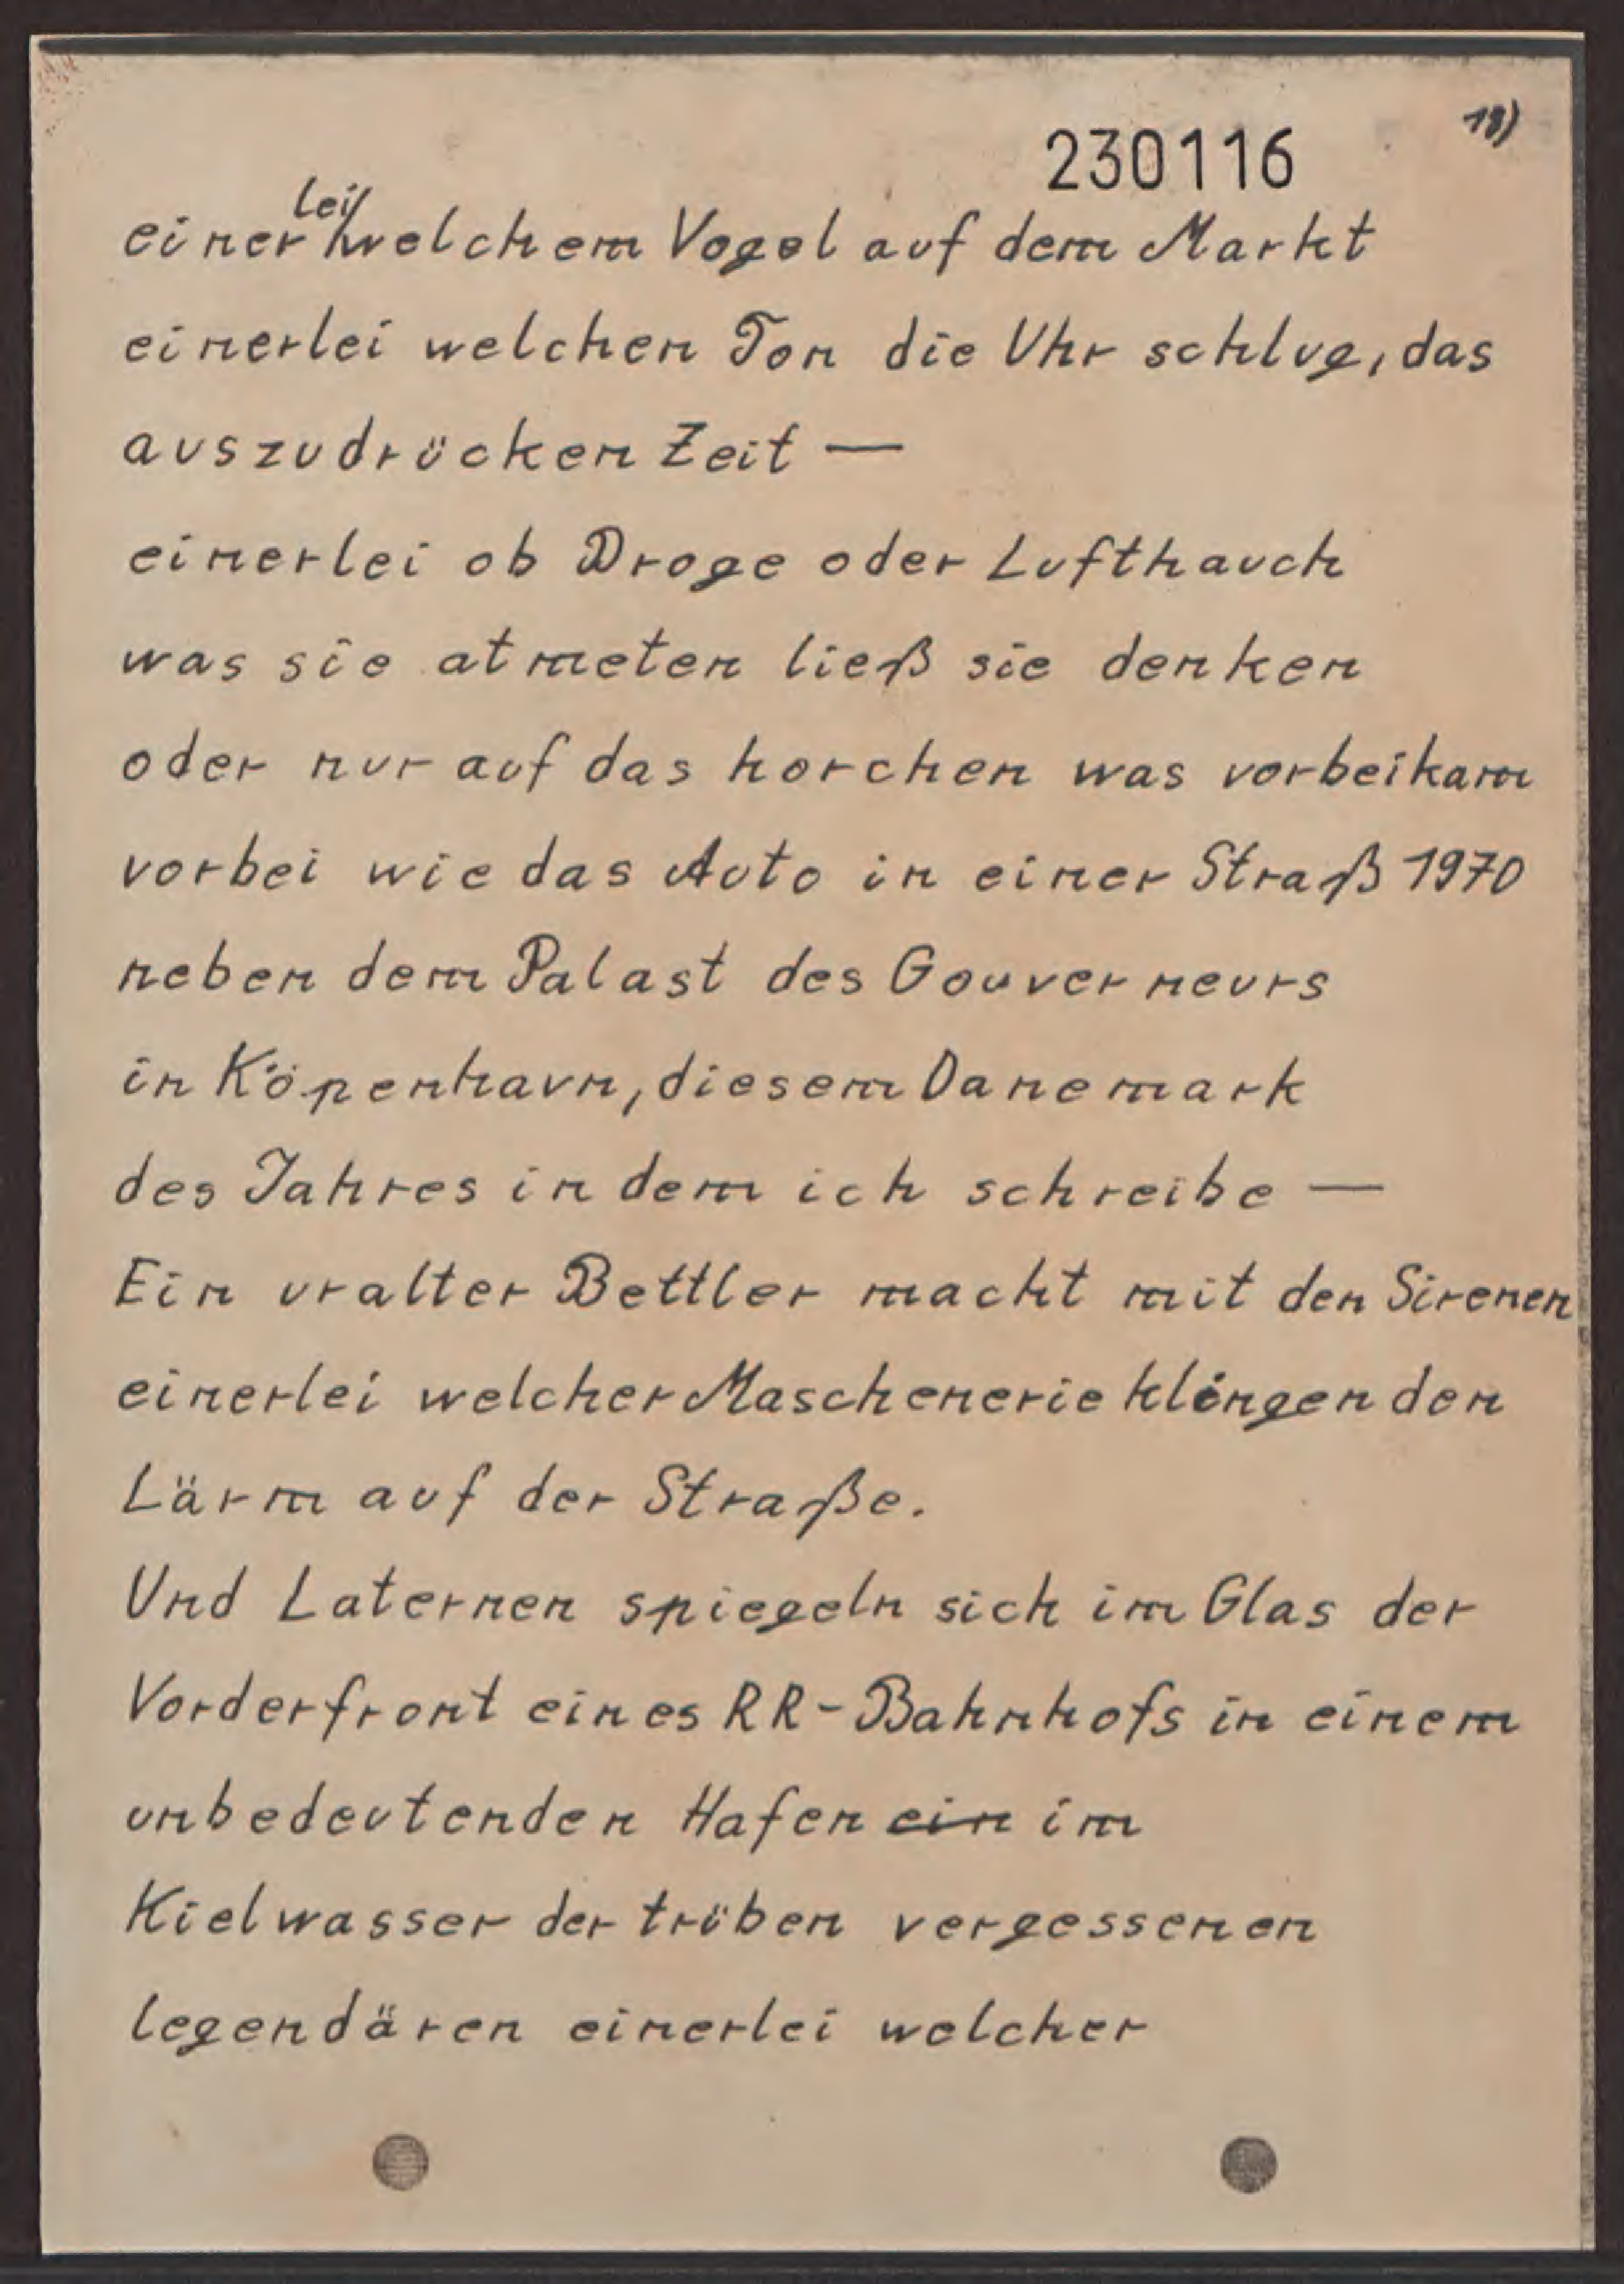 18)
230116
einerlei welchem Vogel auf dem Markt
einerlei welchen Ton die Uhr schlug, das
auszudrücken Zeit —
einerlei ob Droge oder Lufthauch
was sie atmeten ließ sie denken
oder nur auf das horchen was vorbeikam
vorbei wie das Auto in einer Straß 1970
neben dem Palast des Gouverneurs
in Köpenhavn, diesem Danemark
des Jahres in dem ich schreibe —
Ein uralter Bettler macht mit den Sirenen
einerlei welcher Maschenerie klingenden
Lärm auf der Straße.
Und Laternen spiegeln sich im Glas der
Vorderfront eines RR-Bahnhofs in einem
unbedeutenden Hafen ein im
Kielwasser der trüben vergessenen
legendären einerlei welcher